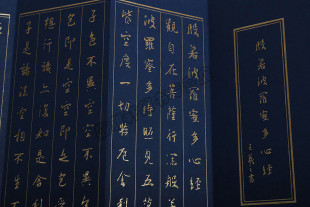 般若波羅蜜多心經
王羲之書
般若波羅蜜多心經
觀自在菩薩行深般
波羅蜜多時照見五蘊
皆空度一切苦厄舍利
子色不異空空不異
色即是空空即是色受
想行識亦復如是舍利
子是諸法空相不生不